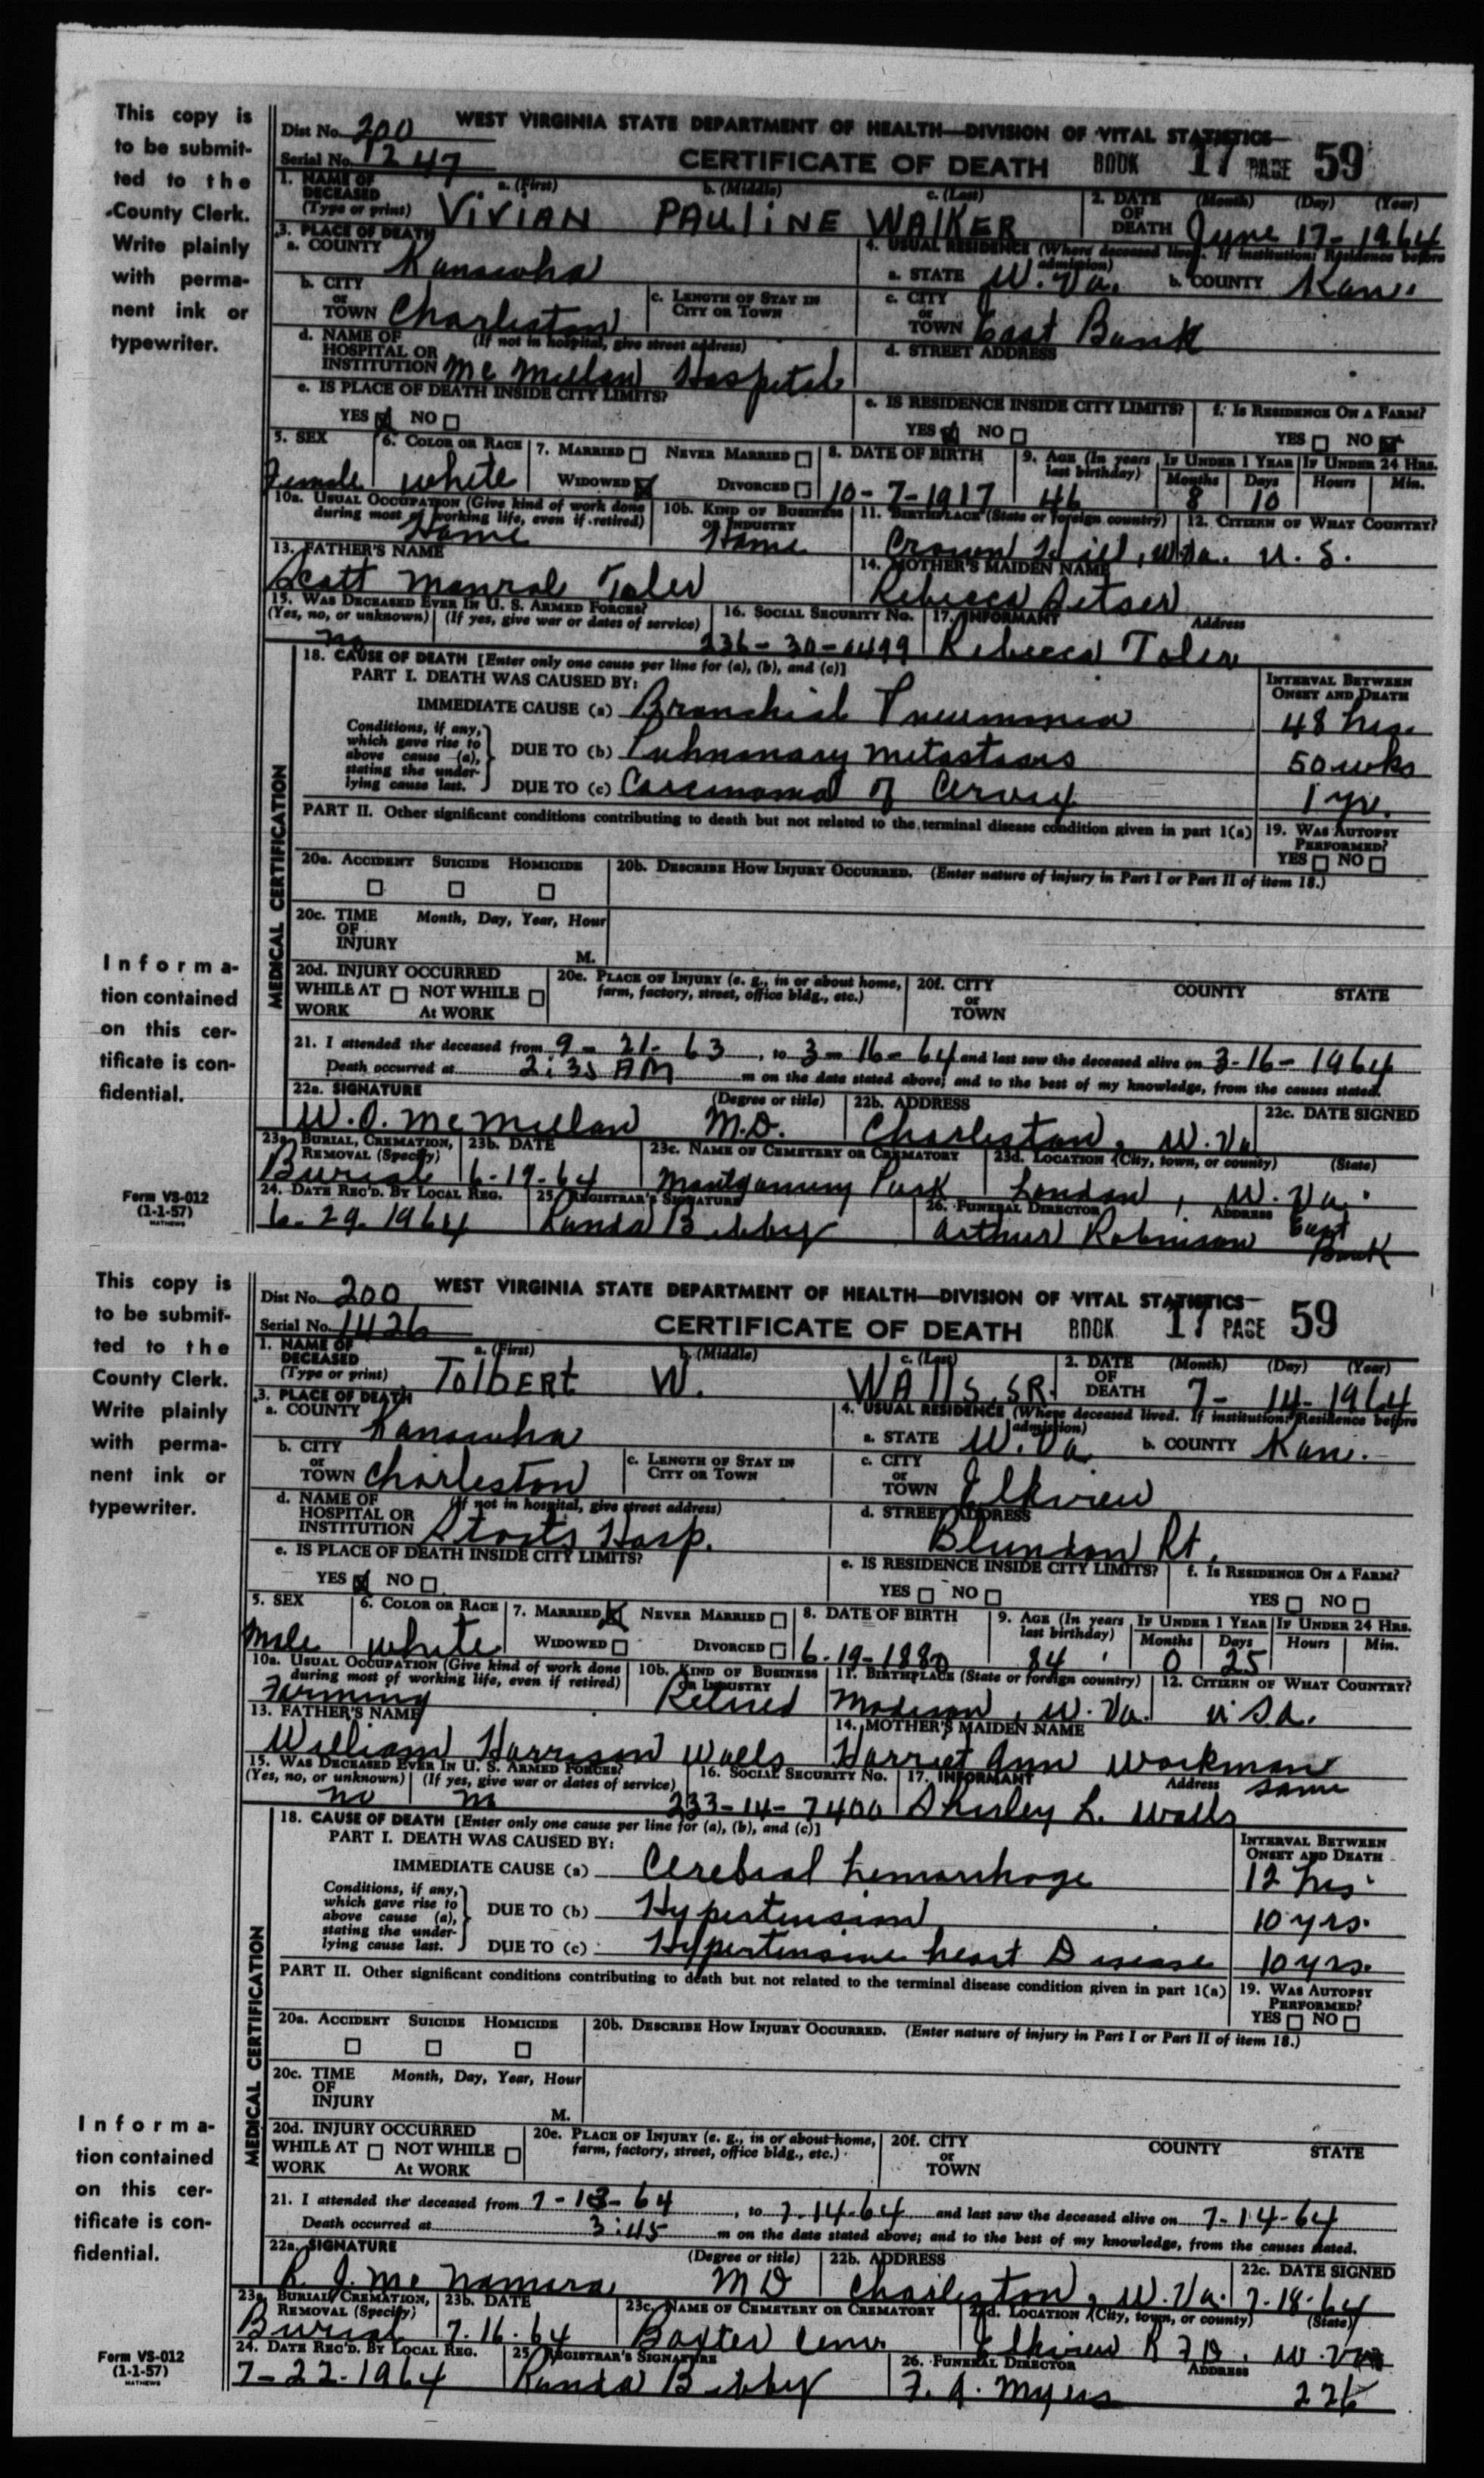 This copy is
to be submit-
ted to the
County Clerk.
Write plainly
with perma-
nent ink or
typewriter.
Informa-
tion contained
on this cer-
tificate is con-
fidential.
Form VS-012
(1-1-57)
MATHEWS
Dist No. 200 WEST VIRGINIA STATE DEPARTMENT OF HEALTH—DIVISION OF VITAL STATISTICS
Serial No. 1247 CERTIFICATE OF DEATH BOOK 17 PAGE 59
1. NAME OF DECEASED (Type or print) a. (First) b. (Middle) c. (Last) 2. DATE OF DEATH (Month) (Day) (Year)
VIVIAN PAULINE WALKER June 17-1964
3. PLACE OF DEATH 4. USUAL RESIDENCE (Where deceased lived. If institution: Residence before admission)
a. COUNTY Kanawha a. STATE W. Va. b. COUNTY Kan.
b. CITY or TOWN Charleston c. LENGTH OF STAY IN CITY OR TOWN c. CITY or TOWN East Bank
d. NAME OF HOSPITAL OR INSTITUTION (If not in hospital, give street address) Mc Millan Hospital d. STREET ADDRESS
e. IS PLACE OF DEATH INSIDE CITY LIMITS? e. IS RESIDENCE INSIDE CITY LIMITS? f. IS RESIDENCE ON A FARM?
YES NO YES NO YES NO
5. SEX 6. COLOR OR RACE 7. MARRIED NEVER MARRIED 8. DATE OF BIRTH 9. AGE (In years last birthday) IF UNDER 1 YEAR IF UNDER 24 HRS.
Months Days Hours Min.
Female white WIDOWED DIVORCED 10-7-1917 46 8 10
10a. USUAL OCCUPATION (Give kind of work done during most of working life, even if retired) 10b. KIND OF BUSINESS OR INDUSTRY 11. BIRTHPLACE (State or foreign country) 12. CITIZEN OF WHAT COUNTRY?
Home Home Crown Hill, W.Va. U. S.
13. FATHER'S NAME 14. MOTHER'S MAIDEN NAME
Scott Monroe Toler Rebecca
15. WAS DECEASED EVER IN U. S. ARMED FORCES? 16. SOCIAL SECURITY NO. 17. INFORMANT Address
(Yes, no, or unknown) (If yes, give war or dates of service)
no 236-30-6499 Rebecca Toler
18. CAUSE OF DEATH [Enter only one cause per line for (a), (b), and (c)] INTERVAL BETWEEN ONSET AND DEATH
PART I. DEATH WAS CAUSED BY:
IMMEDIATE CAUSE (a) Bronchial Pneumonia 48 hrs.
Conditions, if any, which gave rise to above cause (a), stating the underlying cause last.
DUE TO (b) Pulmonary metastasis 50 wks
DUE TO (c) Carcinoma of Cervix 1 yr.
PART II. Other significant conditions contributing to death but not related to the terminal disease condition given in part 1(a) 19. WAS AUTOPSY PERFORMED?
YES NO
MEDICAL CERTIFICATION
20a. ACCIDENT SUICIDE HOMICIDE 20b. DESCRIBE HOW INJURY OCCURRED. (Enter nature of injury in Part I or Part II of item 18.)
20c. TIME OF INJURY Month, Day, Year, Hour M.
20d. INJURY OCCURRED WHILE AT WORK NOT WHILE At WORK 20e. PLACE OF INJURY (e. g., in or about home, farm, factory, street, office bldg., etc.) 20f. CITY or TOWN COUNTY STATE
21. I attended the deceased from 9-21-63, to 3-16-64 and last saw the deceased alive on 3-16-1964
Death occurred at 2:35 AM m on the date stated above; and to the best of my knowledge, from the causes stated.
22a. SIGNATURE (Degree or title) 22b. ADDRESS 22c. DATE SIGNED
W. O. McMillan M.D. Charleston, W. Va
23a. BURIAL, CREMATION, REMOVAL (Specify) 23b. DATE 23c. NAME OF CEMETERY OR CREMATORY 23d. LOCATION (City, town, or county) (State)
Burial 6-19-64 Montgomery Park London, W. Va.
24. DATE REC'D. BY LOCAL REG. 25. REGISTRAR'S SIGNATURE 26. FUNERAL DIRECTOR ADDRESS
6-29-1964 Arthur Robinson East Bank
This copy is
to be submit-
ted to the
County Clerk.
Write plainly
with perma-
nent ink or
typewriter.
Informa-
tion contained
on this cer-
tificate is con-
fidential.
Form VS-012
(1-1-57)
MATHEWS
Dist No. 200 WEST VIRGINIA STATE DEPARTMENT OF HEALTH—DIVISION OF VITAL STATISTICS
Serial No. 1426 CERTIFICATE OF DEATH BOOK 17 PAGE 59
1. NAME OF DECEASED (Type or print) a. (First) b. (Middle) c. (Last) 2. DATE OF DEATH (Month) (Day) (Year)
TOlbERt W. WAllS, SR. 7-14-1964
3. PLACE OF DEATH 4. USUAL RESIDENCE (Where deceased lived. If institution: Residence before admission)
a. COUNTY Kanawha a. STATE W. Va. b. COUNTY Kan.
b. CITY or TOWN Charleston c. LENGTH OF STAY IN CITY OR TOWN c. CITY or TOWN Elkview
d. NAME OF HOSPITAL OR INSTITUTION (If not in hospital, give street address) Staats Hosp. d. STREET ADDRESS Blundon Rt.
e. IS PLACE OF DEATH INSIDE CITY LIMITS? e. IS RESIDENCE INSIDE CITY LIMITS? f. IS RESIDENCE ON A FARM?
YES NO YES NO YES NO
5. SEX 6. COLOR OR RACE 7. MARRIED NEVER MARRIED 8. DATE OF BIRTH 9. AGE (In years last birthday) IF UNDER 1 YEAR IF UNDER 24 HRS.
Months Days Hours Min.
Male white WIDOWED DIVORCED 6-19-1880 84 0 25
10a. USUAL OCCUPATION (Give kind of work done during most of working life, even if retired) 10b. KIND OF BUSINESS OR INDUSTRY 11. BIRTHPLACE (State or foreign country) 12. CITIZEN OF WHAT COUNTRY?
Farming Retired Madison, W. Va. U.S.A.
13. FATHER'S NAME 14. MOTHER'S MAIDEN NAME
William Harrison Walls Harriet Ann Workman
15. WAS DECEASED EVER IN U. S. ARMED FORCES? 16. SOCIAL SECURITY NO. 17. INFORMANT Address same
(Yes, no, or unknown) (If yes, give war or dates of service)
no no 233-14-7400 Shirley L. Walls
18. CAUSE OF DEATH [Enter only one cause per line for (a), (b), and (c)] INTERVAL BETWEEN ONSET AND DEATH
PART I. DEATH WAS CAUSED BY:
IMMEDIATE CAUSE (a) Cerebral hemorrhage 12 hrs
Conditions, if any, which gave rise to above cause (a), stating the underlying cause last.
DUE TO (b) Hypertension 10 yrs.
DUE TO (c) Hypertensive heart Disease 10 yrs.
PART II. Other significant conditions contributing to death but not related to the terminal disease condition given in part 1(a) 19. WAS AUTOPSY PERFORMED?
YES NO
MEDICAL CERTIFICATION
20a. ACCIDENT SUICIDE HOMICIDE 20b. DESCRIBE HOW INJURY OCCURRED. (Enter nature of injury in Part I or Part II of item 18.)
20c. TIME OF INJURY Month, Day, Year, Hour M.
20d. INJURY OCCURRED WHILE AT WORK NOT WHILE At WORK 20e. PLACE OF INJURY (e. g., in or about home, farm, factory, street, office bldg., etc.) 20f. CITY or TOWN COUNTY STATE
21. I attended the deceased from 7-13-64, to 7-14-64 and last saw the deceased alive on 7-14-64
Death occurred at 3:45 m on the date stated above; and to the best of my knowledge, from the causes stated.
22a. SIGNATURE (Degree or title) 22b. ADDRESS 22c. DATE SIGNED
R. J. Mc Namara MD Charleston, W. Va. 7-18-64
23a. BURIAL, CREMATION, REMOVAL (Specify) 23b. DATE 23c. NAME OF CEMETERY OR CREMATORY 23d. LOCATION (City, town, or county) (State)
Burial 7-16-64 Baxter Cem. Elkview RFD. W. Va
24. DATE REC'D. BY LOCAL REG. 25. REGISTRAR'S SIGNATURE 26. FUNERAL DIRECTOR ADDRESS
7-22-1964 F. A. Myers 226